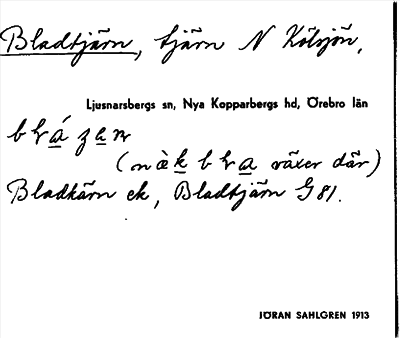 Bladtjärn, tjärn N Kölsjön,
Ljusnarsbergs sn, Nya Kopparbergs hd, Örebro län
(näk bla växer där)
Bladkärn ek, Bladtjärn G 81.
JÖRAN SAHLGREN 1913